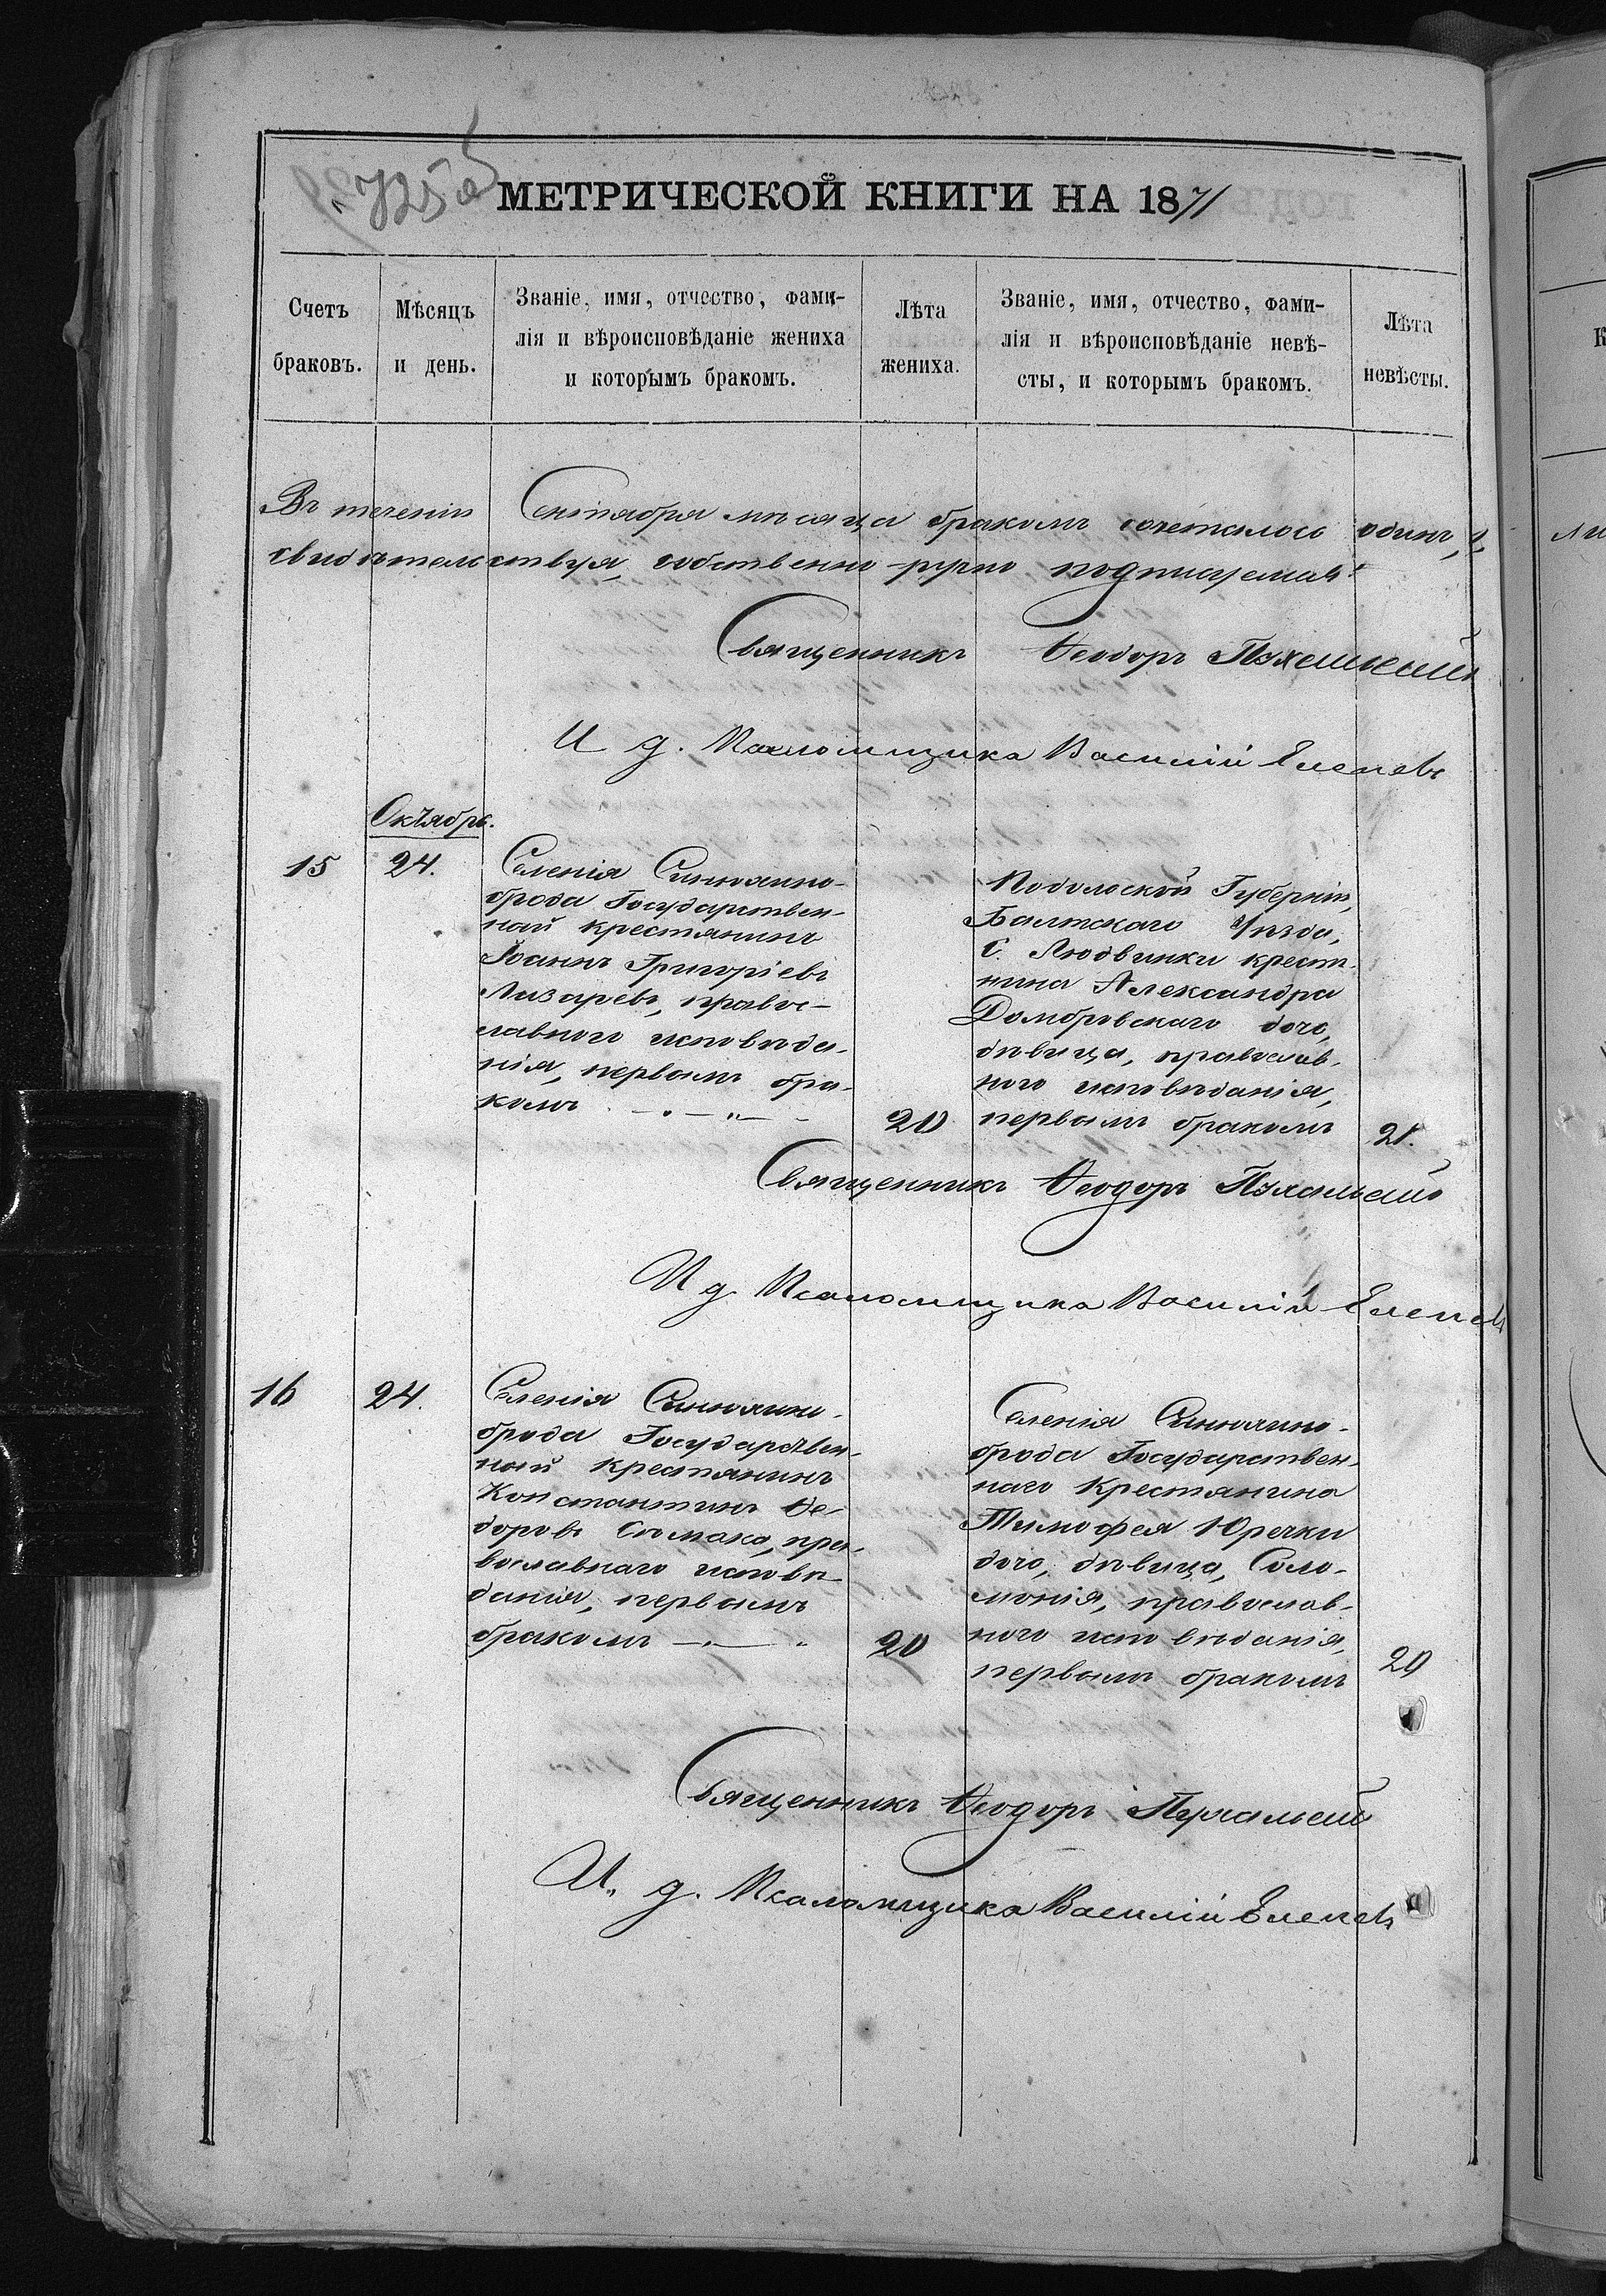 725 об
МЕТРИЧЕСКОЙ КНИГИ НА 1871
Счетъ браковъ.
Мѣсяцъ и день.
Званіе, имя, отчество, фами-
лія и вѣроисповѣданіе жениха
и которымъ бракомъ.
Лѣта жениха.
Званіе, имя, отчество, фами-
лія и вѣроисповѣданіе невѣ-
сты, и которымъ бракомъ.
Лѣта невѣсты.
Въ теченіи Сентября мѣсяца бракомъ сочеталось одинъ,
свидѣтельствуя, собственно-ручно подписуемся:
Священникъ Ѳеодоръ
И д. Псаломщика Василій
Октябрь.
15
24.
Селенія Синюхино-
брода Государствен-
ный крестянинъ
Іоаннъ Григоріевъ
Лазаревъ, правос-
лавного исповѣда-
нія, первымъ бра-
комъ
20
Подольской Губерніи,
Балтскаго Уѣзда,
С. Людвинки крест-
нина Александра
Домбровскаго дочь,
дѣвица, православ-
ного исповѣданія,
первымъ бракомъ
21.
Священникъ Ѳеодоръ
И д. Псаломщика Василій
16
24.
Селенія Синюхино-
брода Государствен-
ный крестянинъ
Константинъ Ѳе-
доровъ пра-
вославнаго исповѣ-
данія, первымъ
бракомъ
20
Селенія Синюхино-
брода Государствен-
наго Крестянина
Тимофея Юречки
дочь, дѣвица, Соло-
монія, православ-
ного исповѣданія,
первымъ бракомъ
20
Священникъ Ѳеодоръ
И. д. Псаломщика Василій